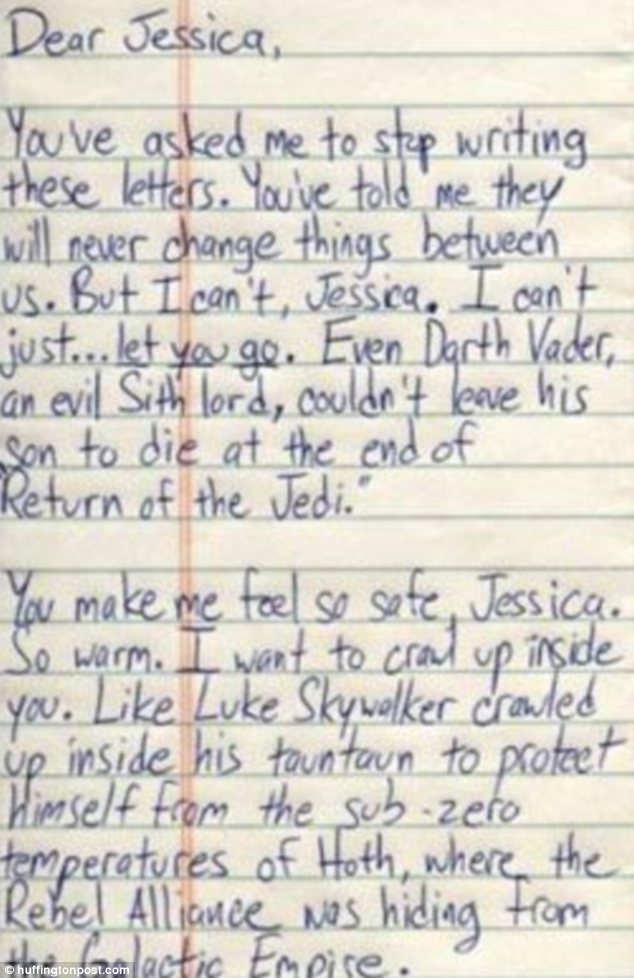 Dear Jessica,
You've asked me to stop writing
these letters. You've told me they
will never change things between
us. But I can't, Jessica. I can't
just... let you go. Even Darth Vader,
an evil Sith lord, couldn't leave his
son to die at the end of
"Return of the Jedi."
You make me feel so safe, Jessica.
So warm. I want to crawl up inside
you. Like Luke Skywalker crawled
up inside his tauntaun to protect
himself from the sub-zero
temperatures of Hoth, where the
Rebel Alliance was hiding from
the Galactic Empire.
© huffingtonpost.com